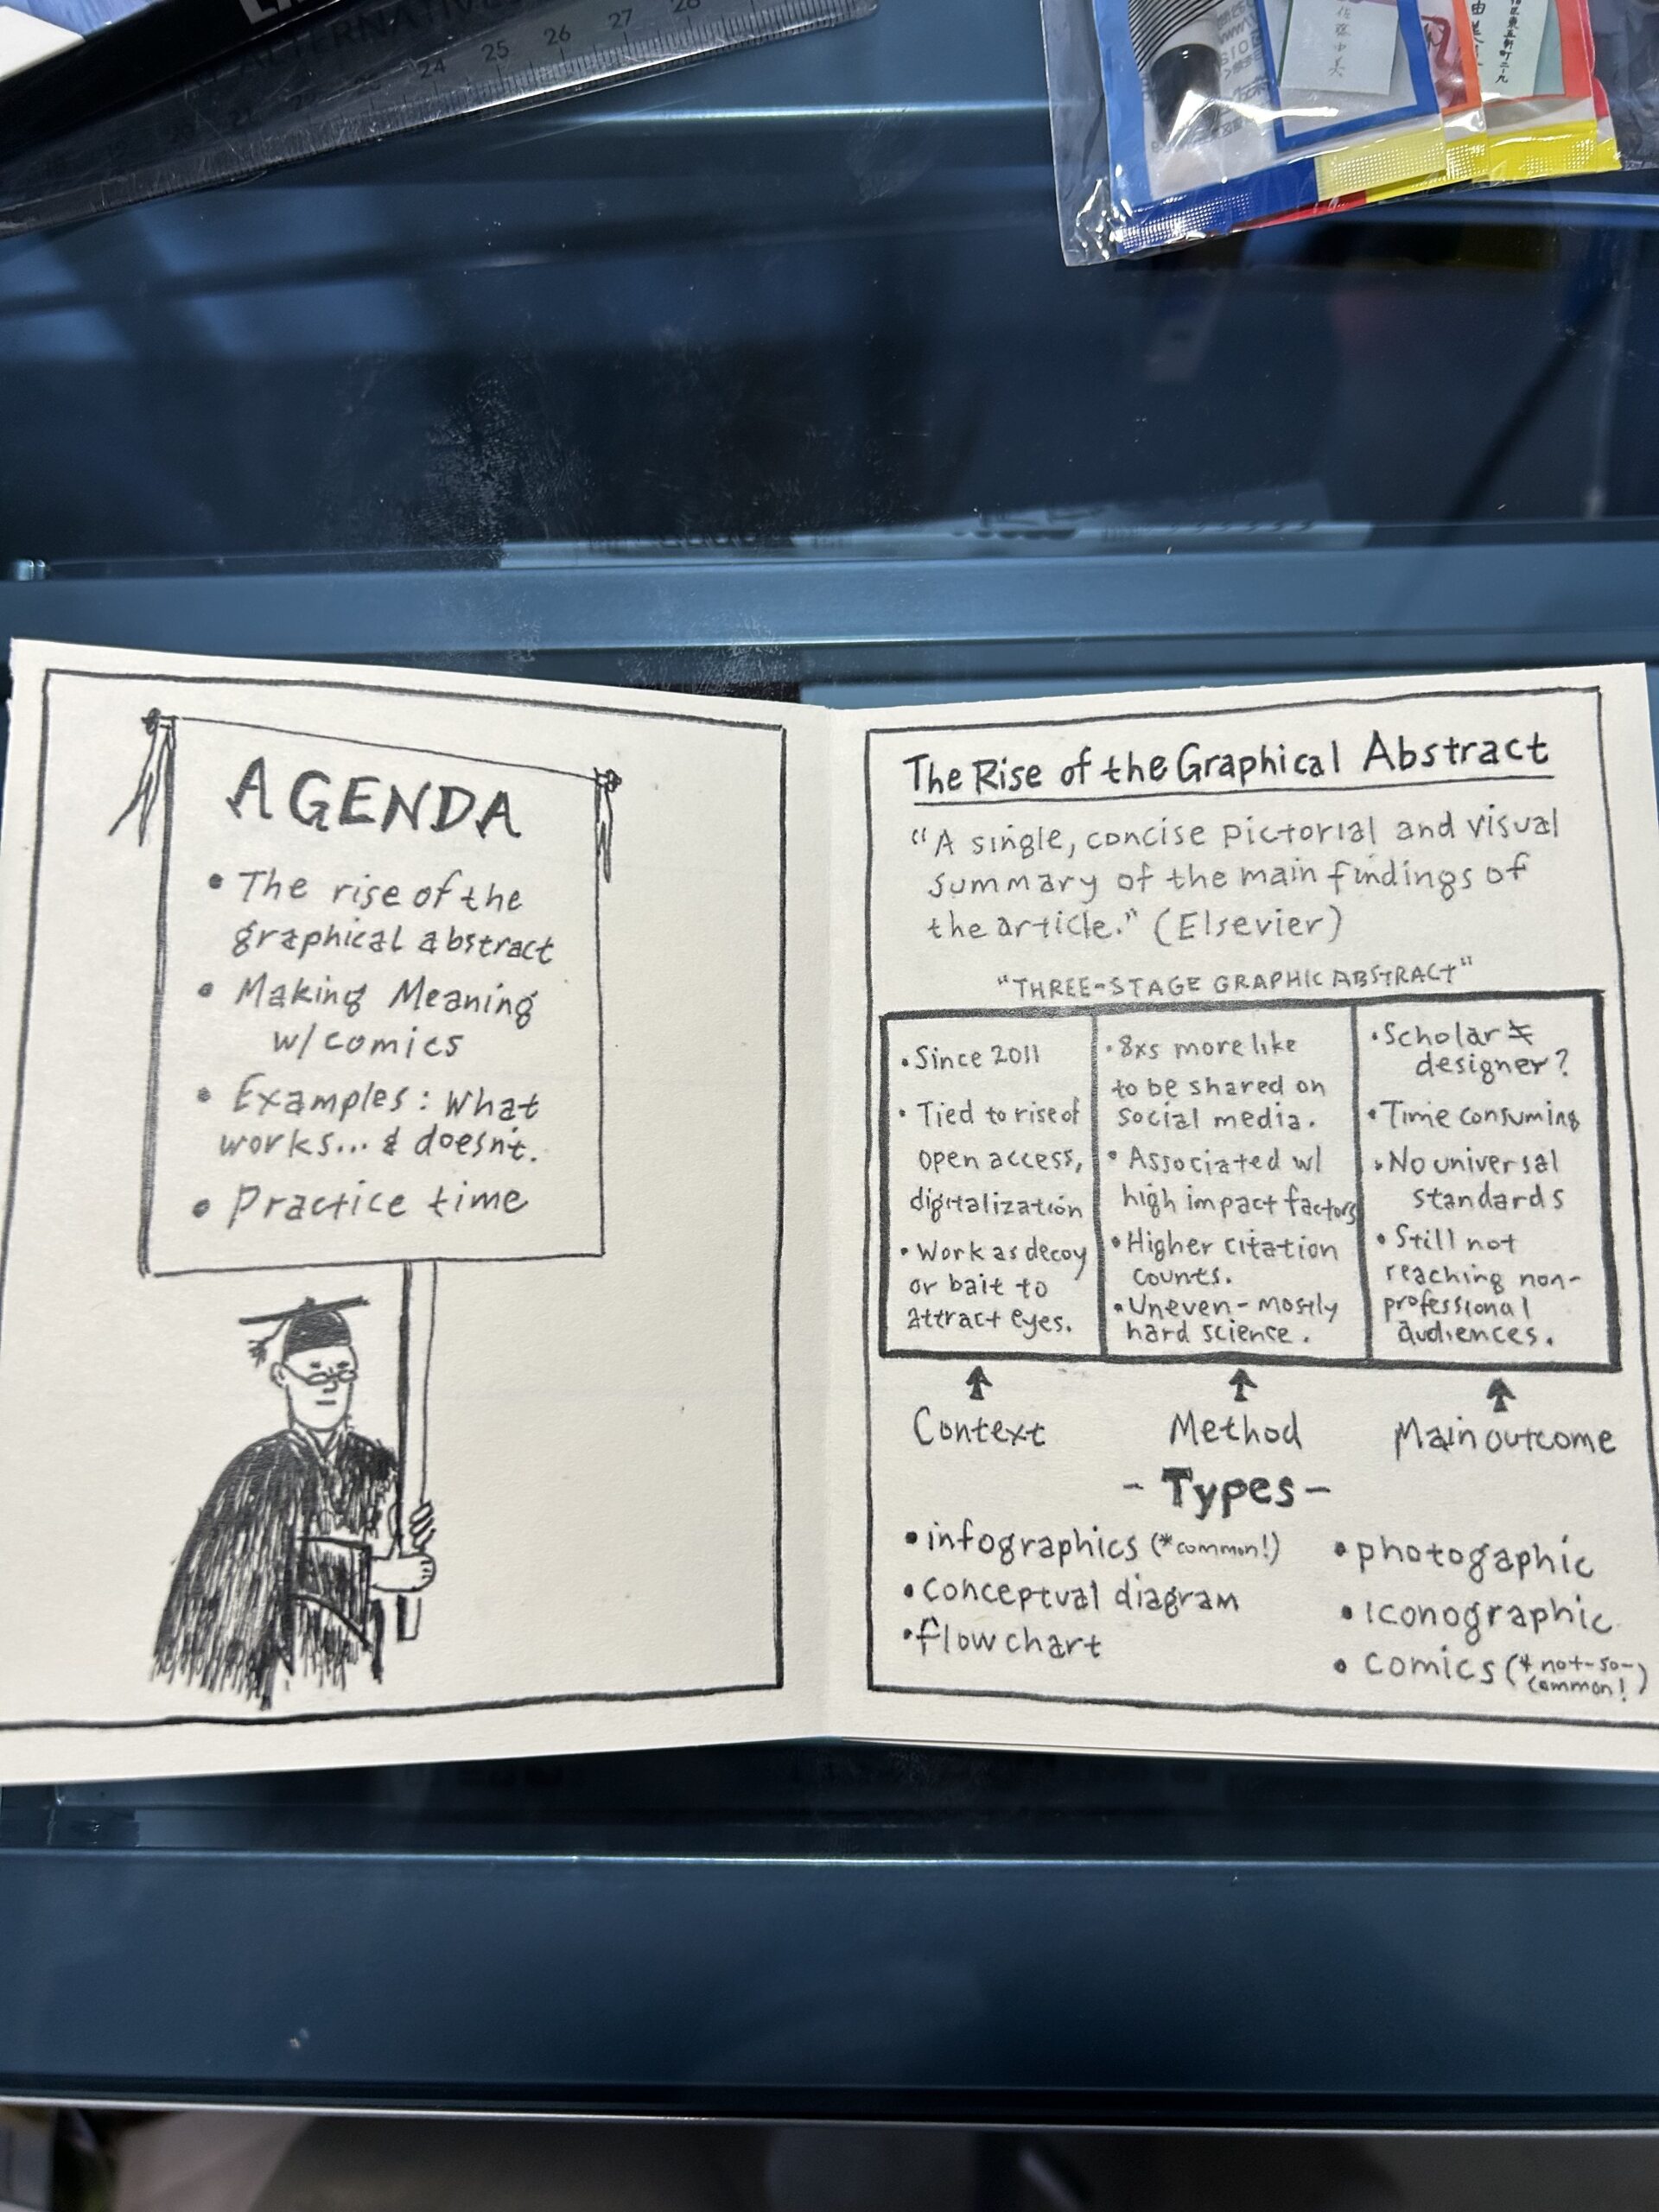 ALTERNATIV
24 25 26 27 28
AGENDA
• The rise of the
graphical abstract
• Making Meaning
w/ comics
• Examples: What
works... & doesn't.
• Practice time
The Rise of the Graphical Abstract
"A single, concise pictorial and visual
summary of the main findings of
the article." (Elsevier)
"THREE-STAGE GRAPHIC ABSTRACT"
• Since 2011
• Tied to rise of
open access,
digitalization
• Work as decoy
or bait to
attract eyes.
• 8xs more like
to be shared on
social media.
• Associated w/
high impact factors
• Higher citation
counts.
• Uneven - mostly
hard science.
• Scholar ≠
designer?
• Time consuming
• No universal
standards
• Still not
reaching non-
professional
audiences.
Context
Method
Main outcome
- Types -
• infographics (*common!)
• conceptual diagram
• flow chart
• photogaphic
• iconographic
• comics (* not-so-
common!)